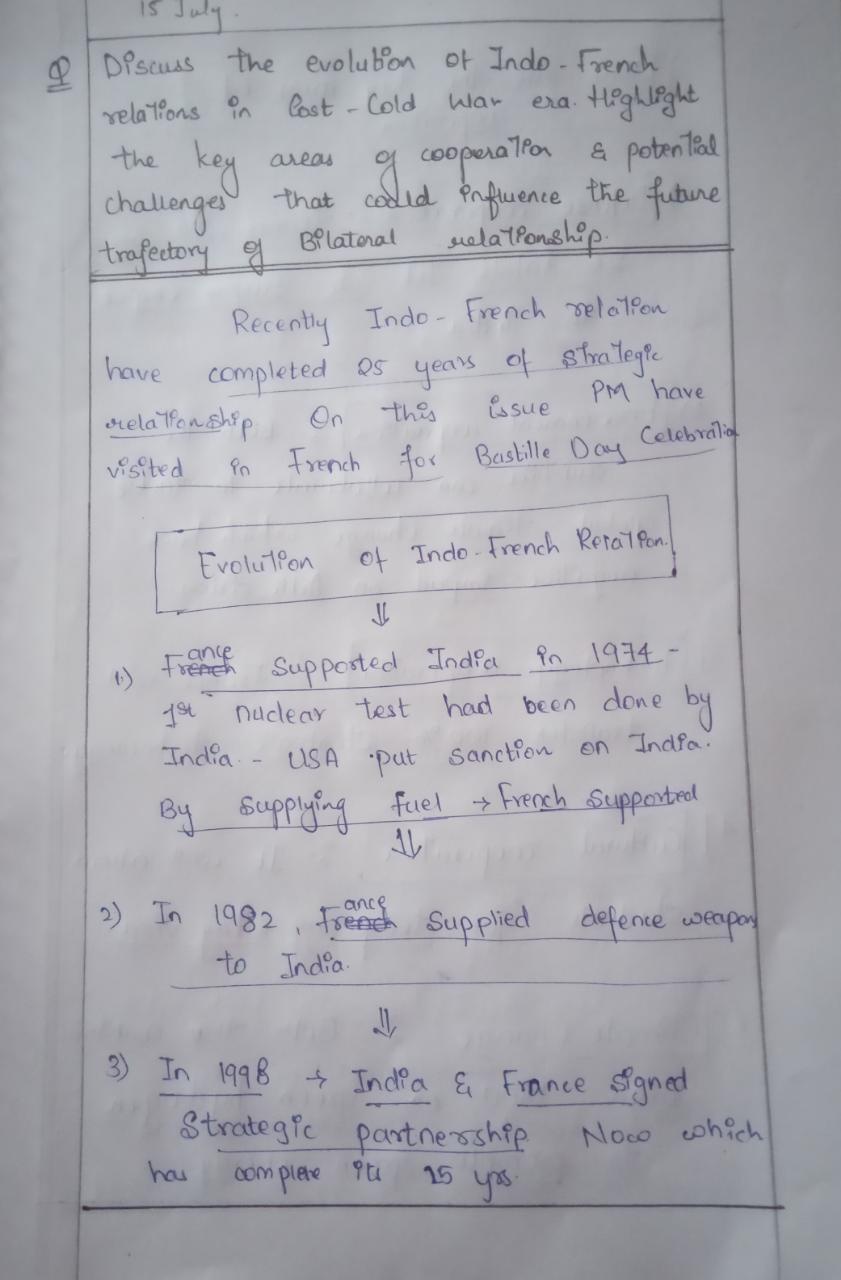 15 July.
Q Discuss the evolution of Indo-French
relations in Post-Cold War era. Highlight
the key areas of cooperation & potential
challenges that could influence the future
trajectory of Bilateral relationship.
Recently Indo-French relation
have completed 25 years of strategic
relationship On this issue PM have
visited in French for Bastille Day Celebration
Evolution of Indo-French Relation.
⇓
1.) France supported India in 1974 -
1st nuclear test had been done by
India. - USA put sanction on India.
By supplying fuel → French supported
⇓
2) In 1982, France supplied defence weapons
to India.
⇓
3) In 1998 → India & France signed
Strategic partnership. Now which
has complete its 25 yrs.